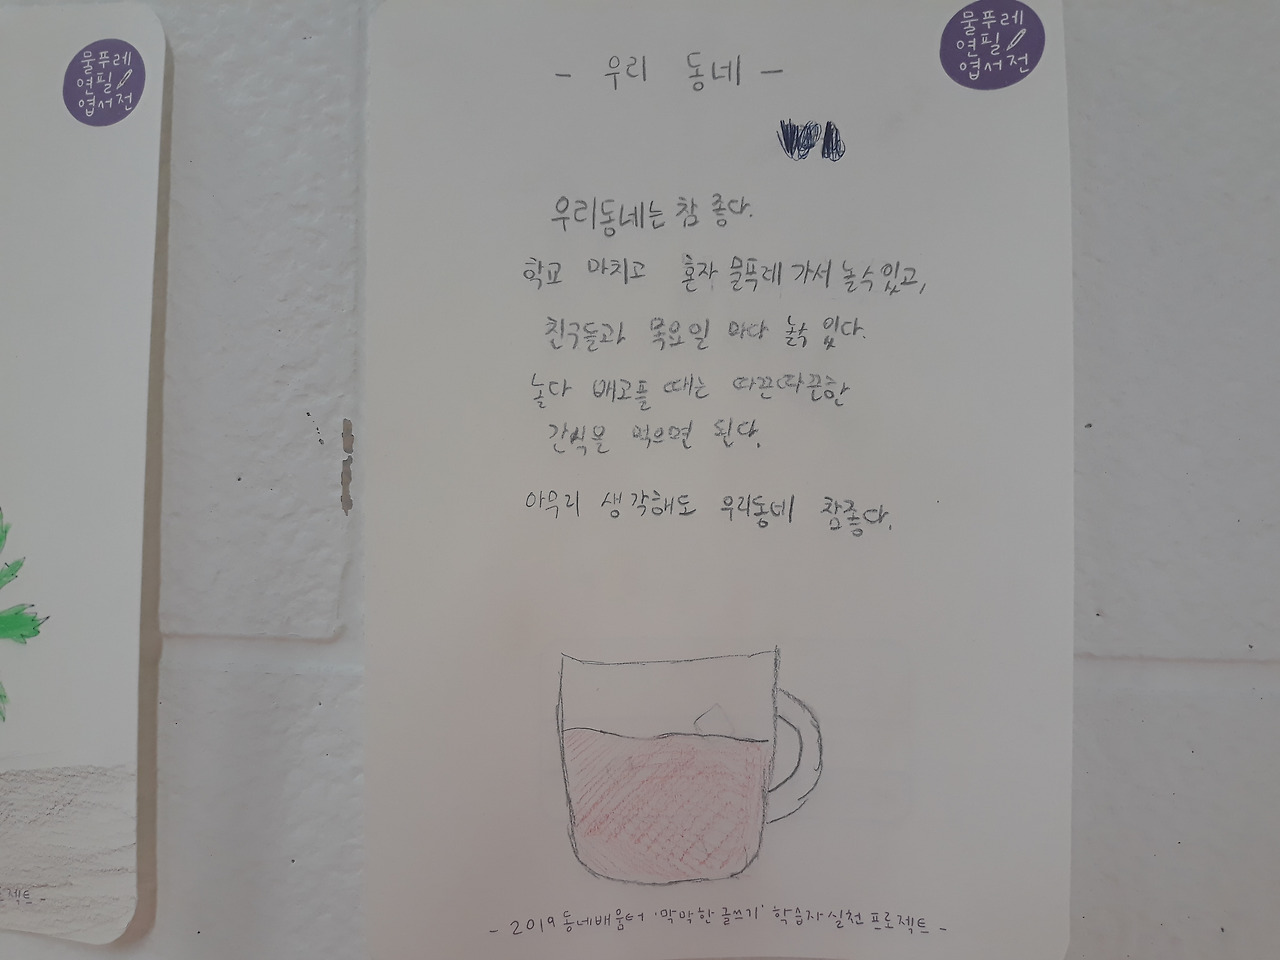 물푸레
연필
엽서전
로젝트 -
물푸레
연필
엽서전
- 우리 동네 -
우리동네는 참 좋다.
학교 마치고 혼자 물푸레 가서 놀수있고,
친구들과 목요일 마다 놀수 있다.
놀다 배고플 때는 따끈따끈한
간식을 먹으면 된다.
아무리 생각해도 우리동네 참좋다.
- 2019 동네배움터 '막막한 글쓰기' 학습자 실천 프로젝트 -